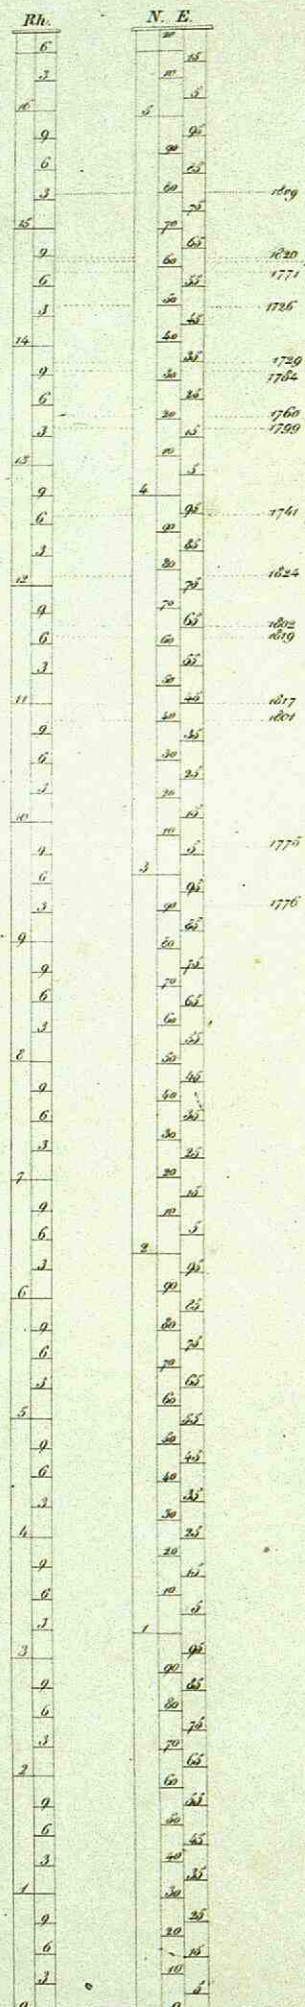 Rh.
6
3
16
9
6
3
15
9
6
3
14
9
6
3
13
9
6
3
12
9
6
3
11
9
6
3
10
9
6
3
9
9
6
3
8
9
6
3
7
9
6
3
6
9
6
3
5
9
6
3
4
9
6
3
3
9
6
3
2
9
6
3
1
9
6
3
0
N. E.
20
15
10
5
5
95
90
85
80
75
70
65
60
55
50
45
40
35
30
25
20
15
10
5
4
95
90
85
80
75
70
65
60
55
50
45
40
35
30
25
20
15
10
5
3
95
90
85
80
75
70
65
60
55
50
45
40
35
30
25
20
15
10
5
2
95
90
85
80
75
70
65
60
55
50
45
40
35
30
25
20
15
10
5
1
95
90
85
80
75
70
65
60
55
50
45
40
35
30
25
20
15
10
5
0
1809
1820
1771
1726
1729
1784
1760
1799
1741
1824
1802
1819
1817
1801
1775
1776